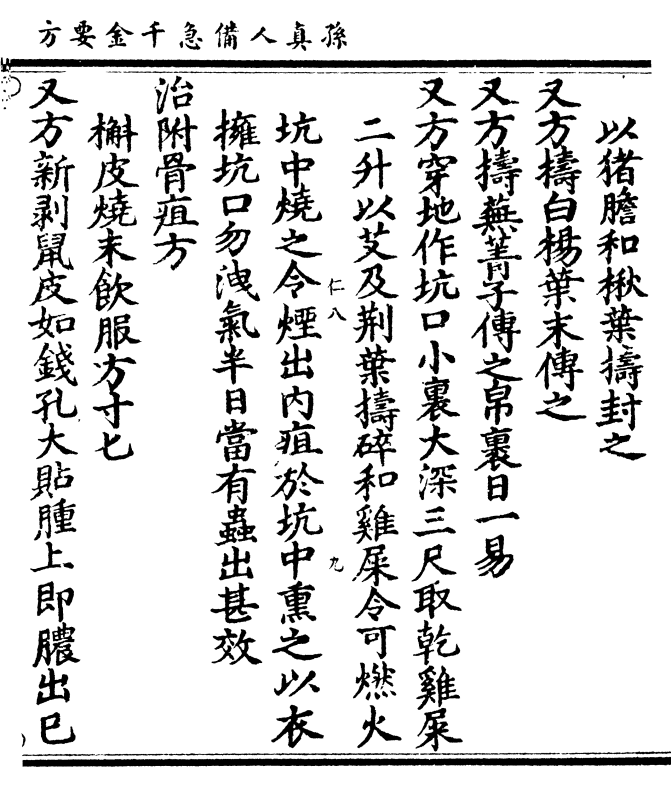 孫真人備急千金要方
以猪膽和楸葉擣封之
又方擣白楊葉末傅之
又方擣蕪菁子傅之帛裹日一易
又方穿地作坑口小裏大深三尺取乾雞屎
二升以艾及荆葉擣碎和雞屎令可燃火
仁八
九
坑中燒之令煙出内疽於坑中熏之以衣
擁坑口勿洩氣半日當有蟲出甚效
治附骨疽方
槲皮燒末飲服方寸匕
又方新剥鼠皮如錢孔大貼腫上即膿出已